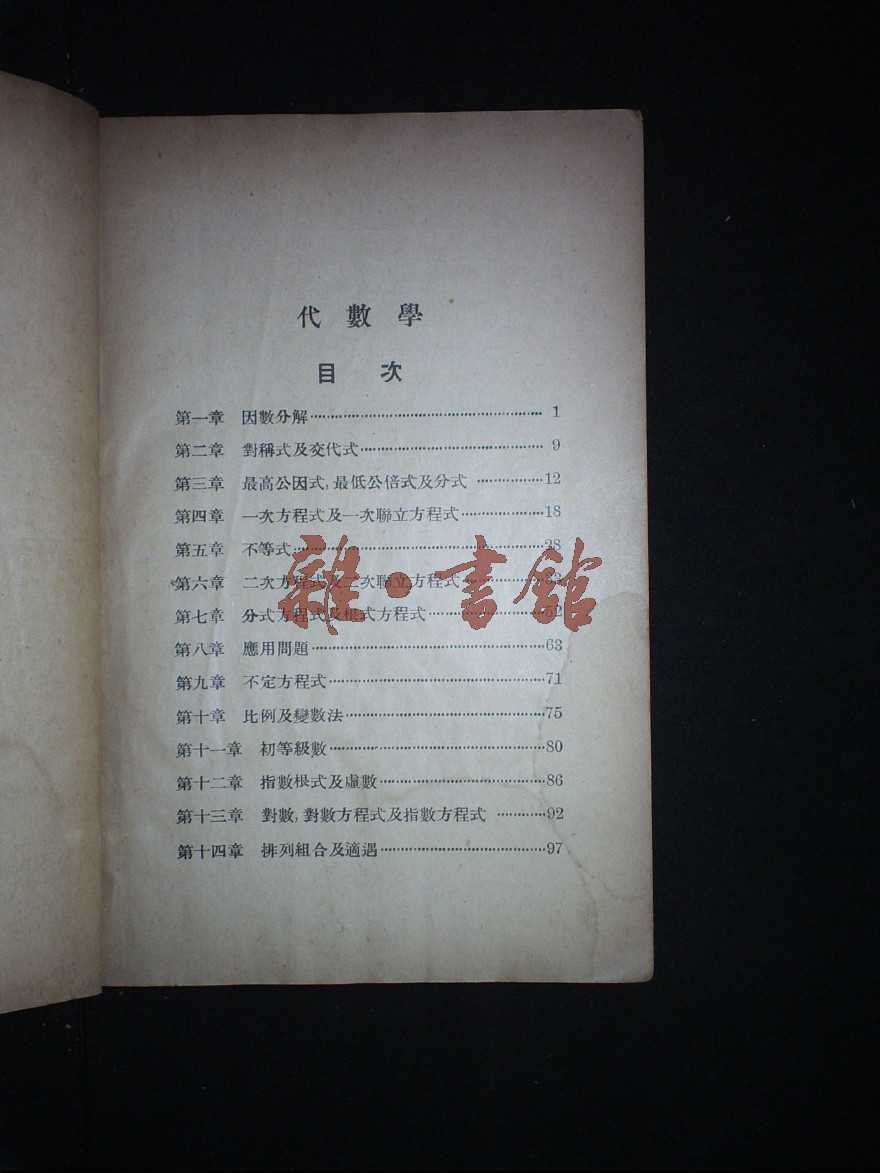 代數學
目次
第一章 因數分解 1
第二章 對稱式及交代式 9
第三章 最高公因式, 最低公倍式及分式 12
第四章 一次方程式及一次聯立方程式 18
第五章 不等式 28
第六章 二次方程式及二次聯立方程式
第七章 分式方程式及根式方程式 52
第八章 應用問題 63
第九章 不定方程式 71
第十章 比例及變數法 75
第十一章 初等級數 80
第十二章 指數根式及虛數 86
第十三章 對數, 對數方程式及指數方程式 92
第十四章 排列組合及適遇 97
雜·書館